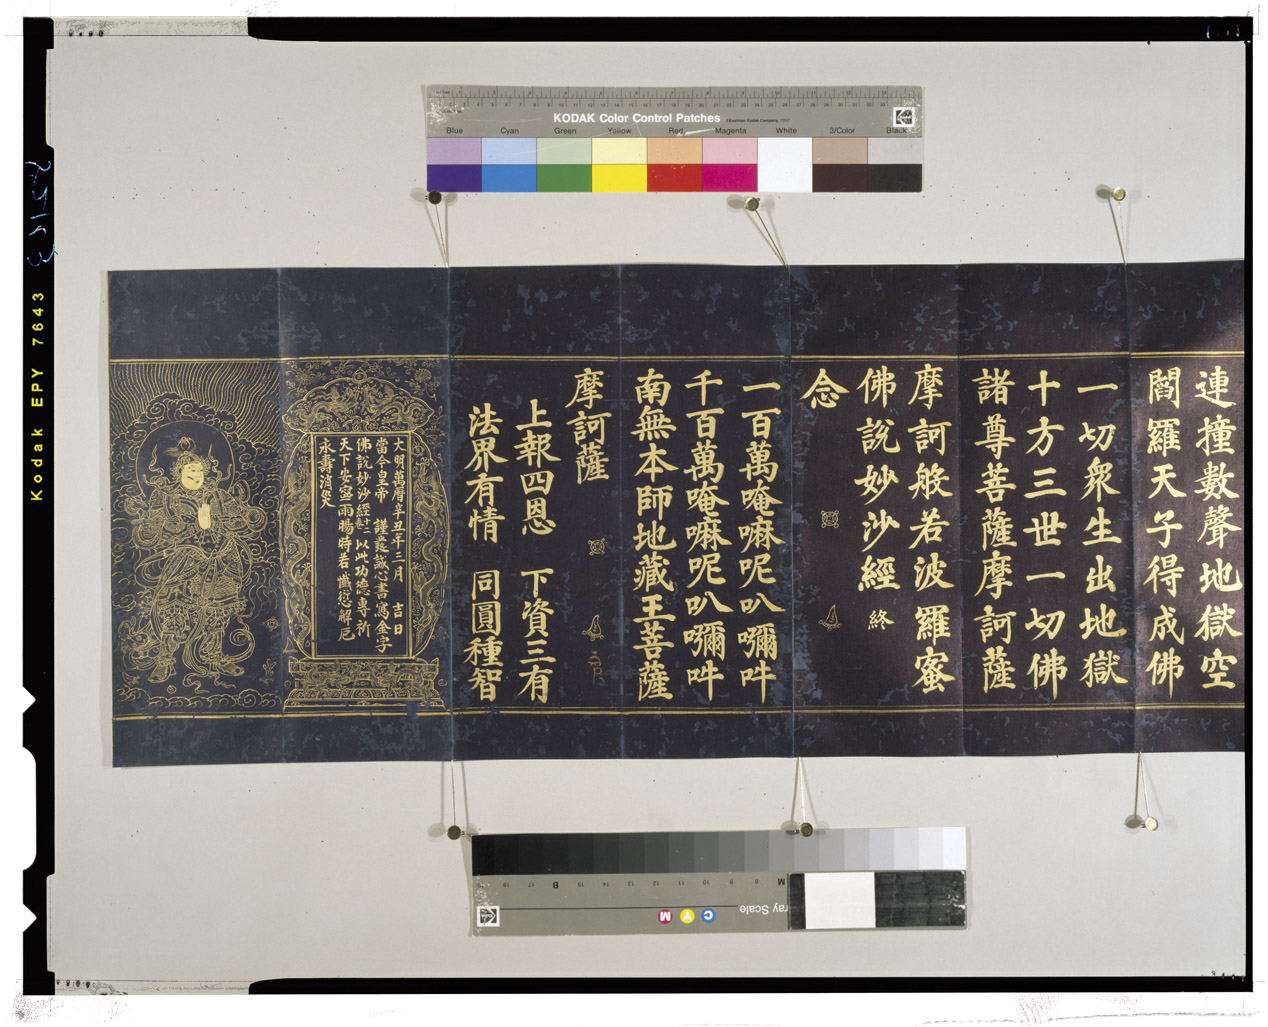 KODAK Color Control Patches
©Eastman Kodak Company, 1997
Blue Cyan Green Yellow Red Magenta White 3/Color Black
連撞數聲地獄空
閻羅天子得成佛
一切眾生出地獄
十方三世一切佛
諸尊菩薩摩訶薩
摩訶般若波羅蜜
佛說妙沙經 終
念
一百萬唵嘛呢叭嚩吽
千百萬唵嘛呢叭嚩吽
南無本師地藏王菩薩
摩訶薩
上報四恩 下資三有
法界有情 同圓種智
大明萬曆辛丑年三月 吉日
當今皇帝 謹發誠心書寫金字
佛說妙沙經十二 以此功德專祈
天下安寧雨暘時若 懺愆解厄
永壽消災
Kodak EPY 7643
Gray Scale
C Y M